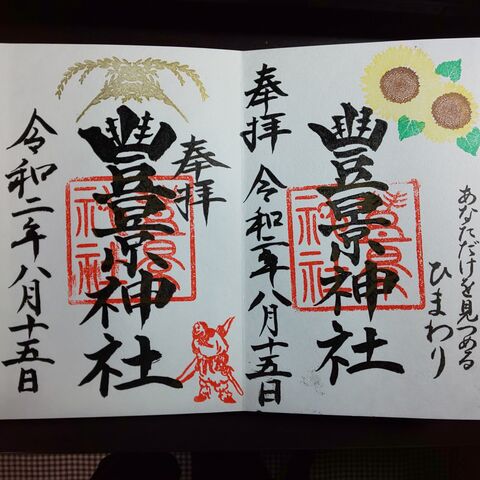 奉拝
豊景神社
令和二年八月十五日
あなただけを見つめる
ひまわり
奉拝
豊景神社
令和二年八月十五日